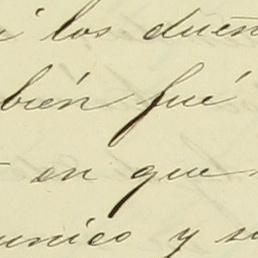 á los dueñ
bién fué
en que
unico y su